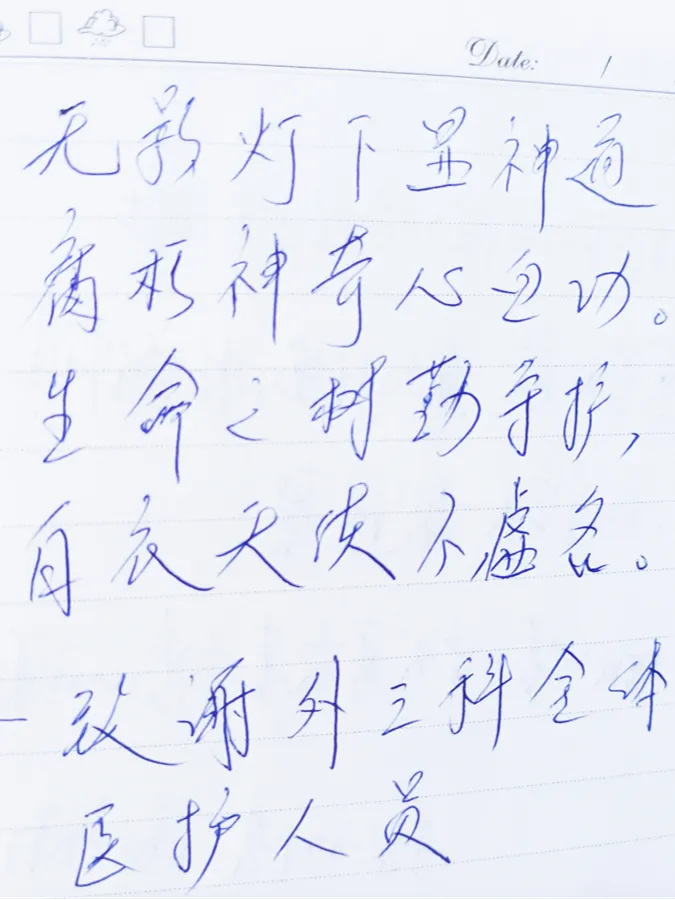 Date: /
无影灯下显神通
腐朽神奇心自功。
生命之树勤守护,
白衣天使不虚名。
一致谢外三科全体
医护人员